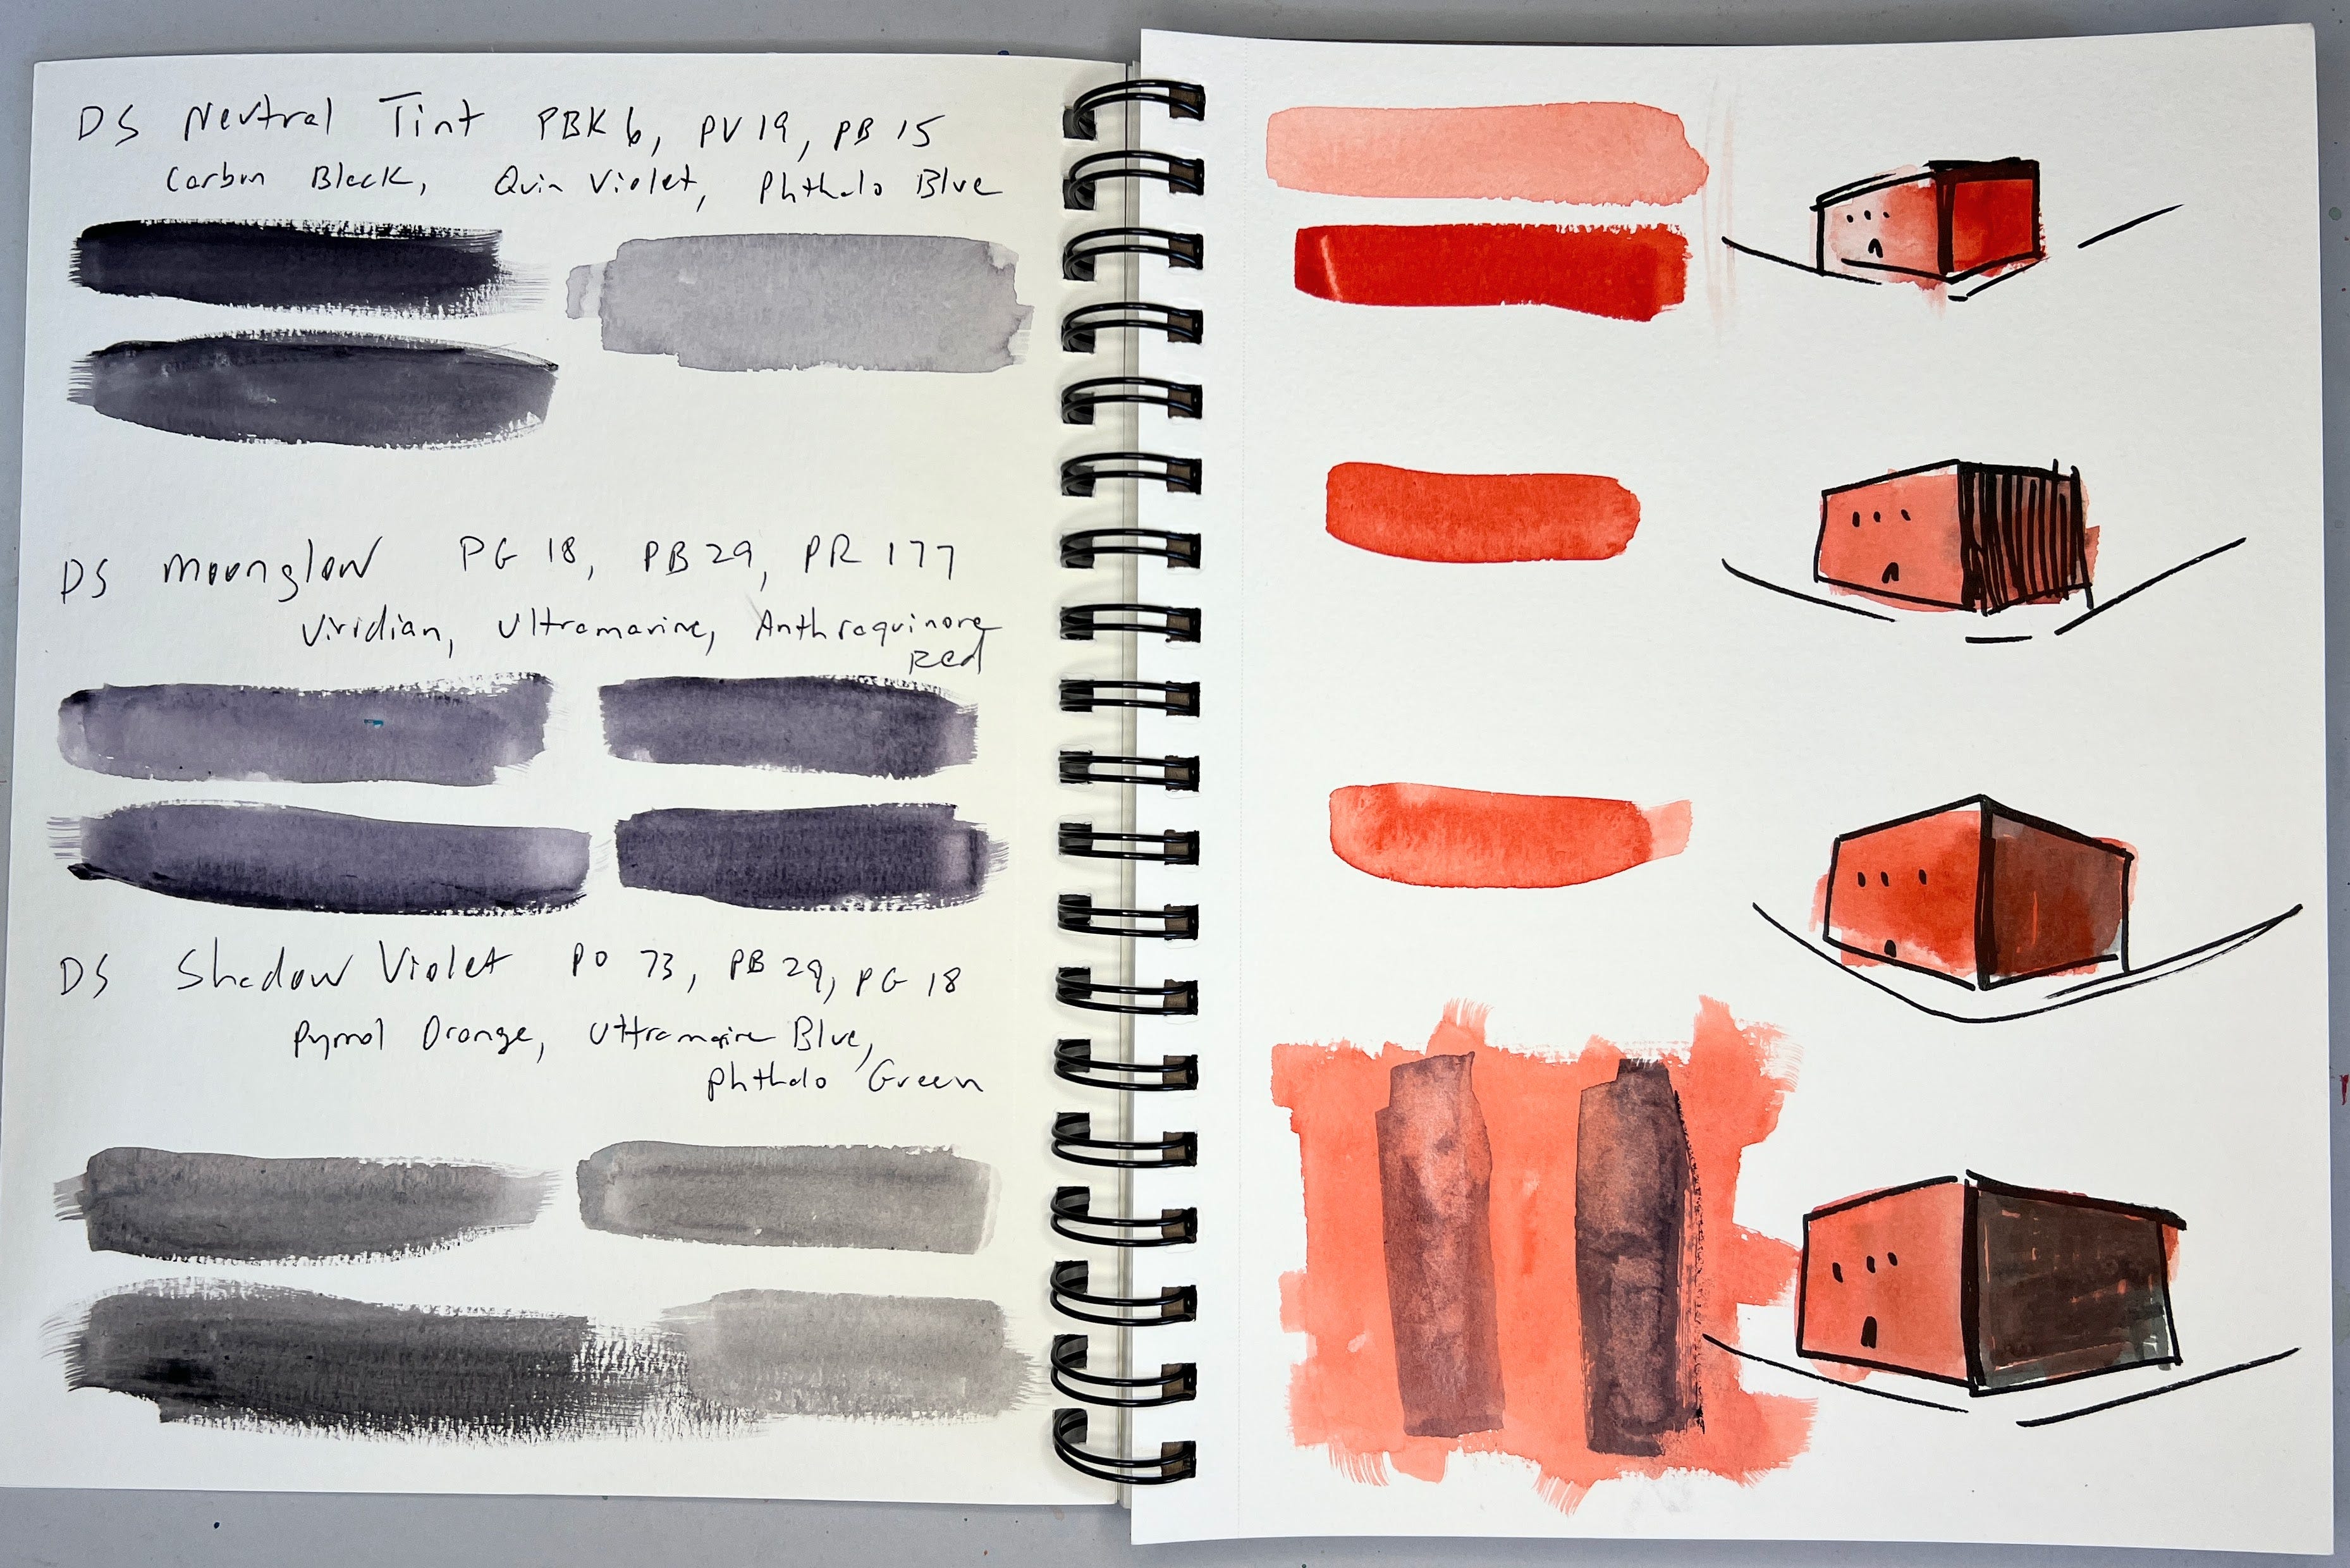 DS Neutral Tint PBK 6, PV 19, PB 15
Carbon Black, Quin Violet, Phthalo Blue
DS Moonglow PG 18, PB 29, PR 177
Viridian, Ultramarine, Anthraquinone
Red
DS Shadow Violet PO 73, PB 29, PG 18
Pyrrol Orange, Ultramarine Blue,
Phthalo Green